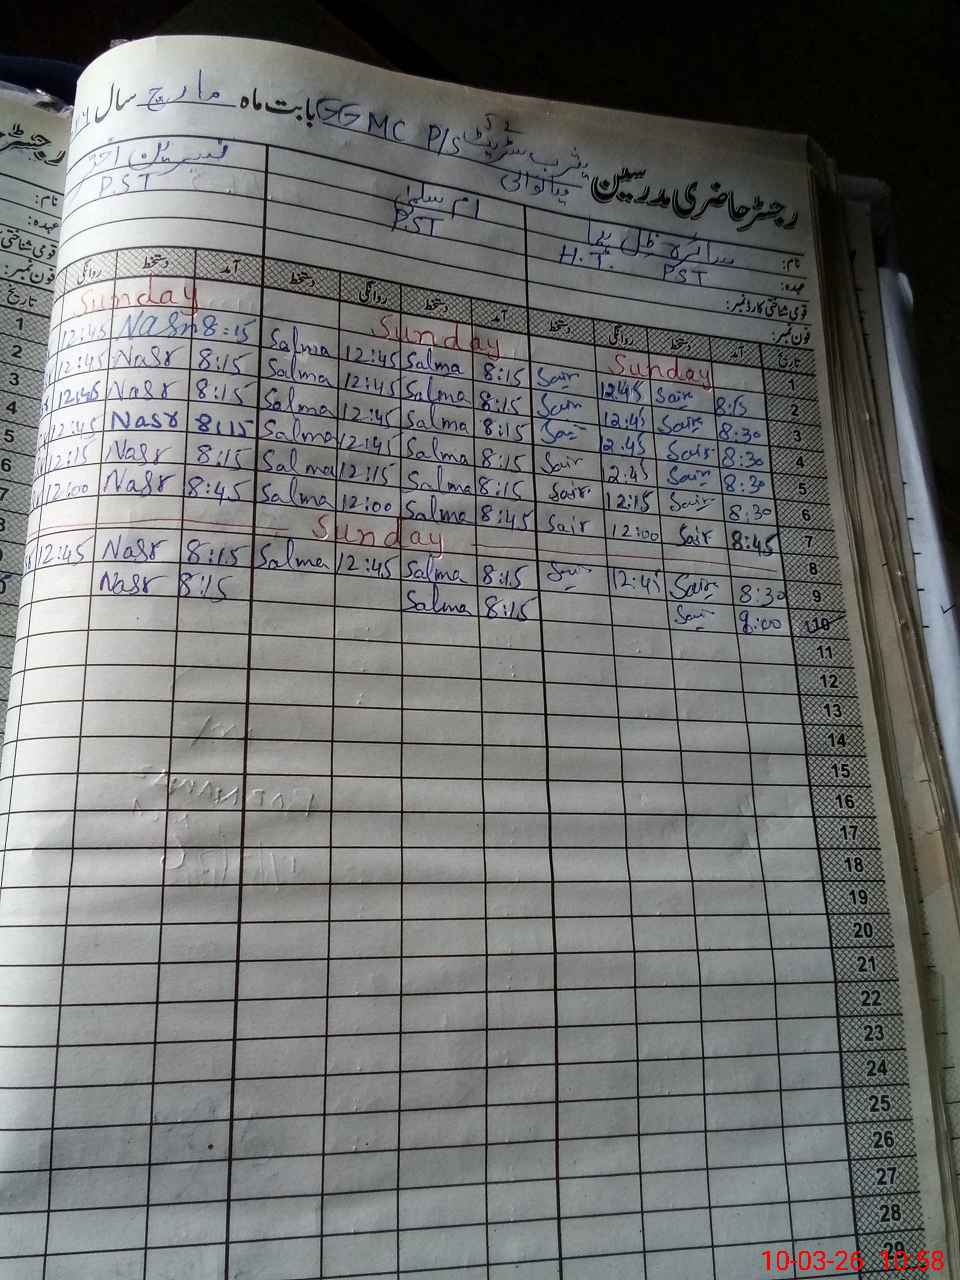 رجسٹر حاضری مدرسین GGMC P/S یثرب سٹریٹ میانوالی بابت ماہ مارچ سال
نام: سائرہ ظل ہما ام سلمیٰ نسرین اختر
عہدہ: H.T. PST PST P.ST
قومی شناختی کارڈ نمبر:
فون نمبر:
تاریخ آمد دستخط روانگی دستخط آمد دستخط روانگی دستخط آمد دستخط روانگی
1 Sunday Sunday Sunday
2 8:15 Sair 12:45 Sair 8:15 Salma 12:45 Salma 8:15 Nasr 12:45
3 8:30 Sair 12:45 Sair 8:15 Salma 12:45 Salma 8:15 Nasr 12:45
4 8:30 Sair 12:45 Sair 8:15 Salma 12:45 Salma 8:15 Nasr 12:45
5 8:30 Sair 12:45 Sair 8:15 Salma 12:45 Salma 8:15 Nasr 12:45
6 8:30 Sair 12:15 Sair 8:15 Salma 12:15 Salma 8:15 Nasr 12:15
7 8:45 Sair 12:00 Sair 8:45 Salma 12:00 Salma 8:45 Nasr 12:00
8 Sunday
9 8:30 Sair 12:45 Sair 8:15 Salma 12:45 Salma 8:15 Nasr 12:45
10 Sair 8:15 Salma 8:15 Nasr
11
12
13
14
15
16
17
18
19
20
21
22
23
24
25
26
27
28
29
10-03-26 10:58